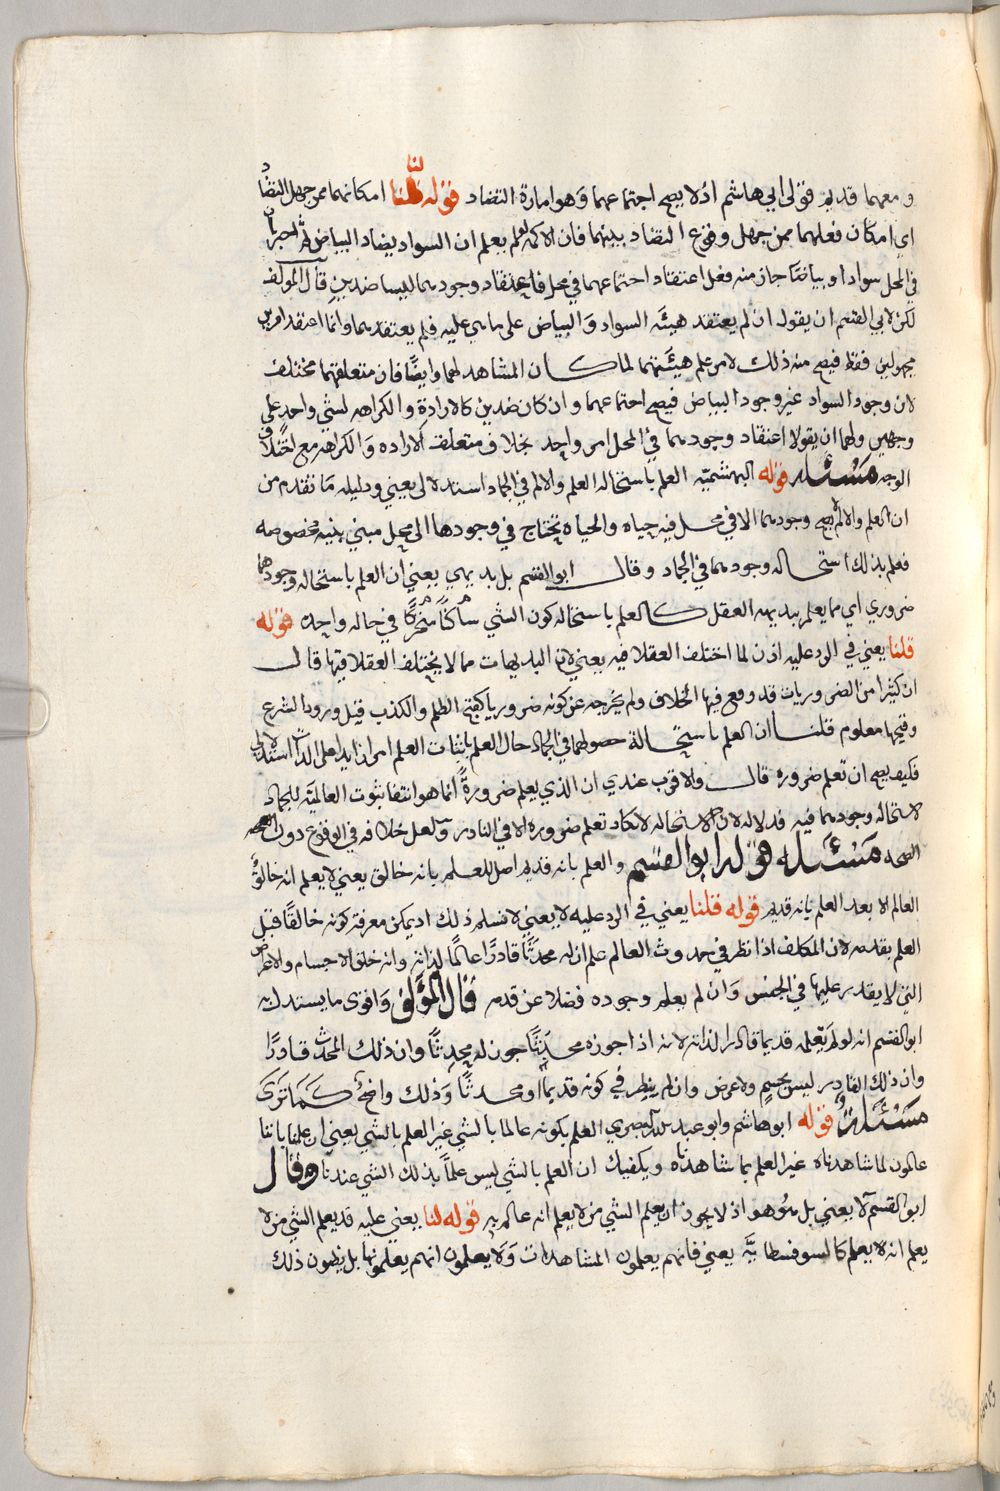 ومعهما قديم قولى ابي هاشم اذ لا يصح اجتماعهما وهو امارة التضاد قوله لنا امكانهما ممن جهل التضاد
اي امكان فعلهما ممن جهل وقوع التضاد بينهما فان الاكمه لم يعلم ان السواد يضاد البياض
في المحل سوادا وبياضا جاز منه فعل اعتقاد اجتماعهما في محل فاعتقاد وجودهما ليسا ضدين قال المولف
لكن لابي القسم ان يقول ان لم يعتقد هيئة السواد والبياض على ماهي عليه فلم يعتقدهما وانما اعتقد امرين
مجهولين فقط فيصح منه ذلك لا من علم هيئتهما لما كان المشاهد لهما وايضا فان متعلقهما مختلف
لان وجود السواد غير وجود البياض فيصح اجتماعهما وان كان ضدين كالارادة والكراهه لشي واحد على
وجهين ولهما ان يقولا اعتقاد وجودهما في المحل امر واحد بخلاف متعلق الاراده والكراهه مع اختلاف
الوجه مسئله قوله البهشميه العلم باستحاله العلم والالم في الجماد استدلالي يعني ودليله ما تقدم من
ان العلم والالم لا يصح وجودهما الا في محل فيه حياه والحياه تحتاج في وجودها الى محل مبني بنيه مخصوصه
فعلم بذلك استحاله وجودهما في الجماد وقال ابو القسم بل بديهي يعني ان العلم باستحاله وجودهما
ضروري اي مما يعلم ببديهه العقل كالعلم باستحاله كون الشي ساكنا متحركا في حاله واحده قوله
قلنا يعني في الرد عليه اذن لما اختلف العقلا فيه يعني لان البديهات مما لا يختلف العقلا فيها قال
ان كثيرا من الضروريات قد وقع فيها الخلاف ولم يخرجه عن كونه ضروريا كقبح الظلم والكذب قبل ورود الشرع
وقبحها معلوم قلنا ان العلم باستحالة حصولهما في الجماد حال العلم باثبات العلم امرا زايدا على الذات استدلالي
فكيف يصح ان تعلم ضروره قال والاقرب عندي ان الذي يعلم ضرورةً انما هو انتفا ثبوت العالميه للجماد
لاستحاله وجودهما فيه فدلاله لان الاستحاله لا تكاد تعلم ضروره الا في النادر ولعل خلافه في الوقوع دون
الصحه مسئله قوله ابو القسم والعلم بانه قديم اصل للعلم بانه خالق يعني لا يعلم انه خالق
العالم الا بعد العلم بانه قديم قوله قلنا يعني في الرد عليه لا يعني لا نسلم ذلك اذ يمكن معرفة كونه خالقا قبل
العلم بقدمه لان المكلف اذا نظر في حدوث العالم علم ان له محدثا قادرا عالما لذاته وانه خلق الاجسام والاعراض
التي لا يقدر عليها في الجنس وان لم يعلم وجوده فضلا عن قدمه قال المؤلف واقوى ما يستدل به
ابو القسم انه لو لم يعلمه قديما قادرا لذاته لانه اذا جوزه محدثا جوز له محدثا وان ذلك المحدث قادرا
وان ذلك القادر ليس بجسم ولا عرض وان لم ينظر في كونه قديما او محدثا وذلك واضح كما ترى
مسئلة قوله ابو هاشم وابو عبد الله البصري العلم بكونه عالما بالشي غير العلم بالشي يعني ان علمنا باننا
عالمون لما شاهدناه غير العلم بما شاهدناه ويكفيك ان العلم بالشي ليس علما بذلك الشي عندنا وقال
ابو القسم لا يعني بل هو هو اذ لا يجوز ان يعلم الشي من لا يعلم انه عالم به قوله لنا يعني عليه قد يعلم الشي من لا
يعلم انه لا يعلم كالسوفسطايية يعني فانهم يعلمون المشاهدات ولا يعلمون انهم يعلمونها بل يظنون ذلك